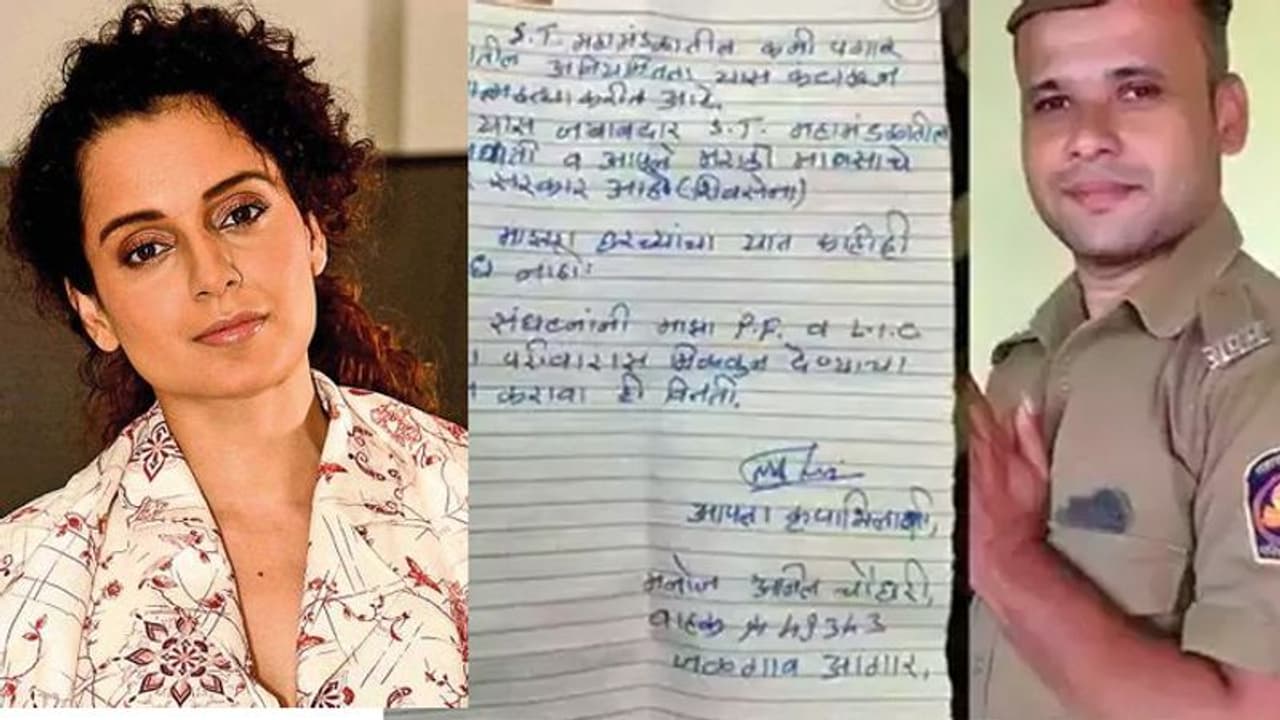 S.T. महामंडळातील कमी पगार
तील अनियमितता यास कंटाळून
आत्महत्या करीत आहे.
यास जबाबदार S.T. महामंडळातील
पध्दती व आपले मराठी माणसाचे
सरकार आहे (शिवसेना)
माझ्या घरच्यांचा यात काहीही
नाही.
संघटनांनी माझा P.F. व L.I.C
परिवारास मिळवून देण्याचा
करावा ही विनंती.
आपला कृपाभिलाषी,
मनोज अनिल चौधरी,
वाहक 49343
जळगाव आगार.